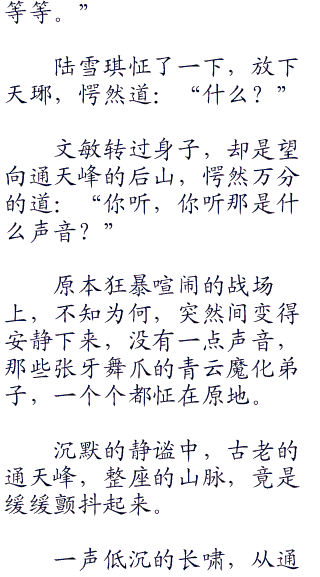 等等。”
陆雪琪怔了一下，放下
天琊，愕然道：“什么？”
文敏转过身子，却是望
向通天峰的后山，愕然万分
的道：“你听，你听那是什
么声音？”
原本狂暴喧闹的战场
上，不知为何，突然间变得
安静下来，没有一点声音，
那些张牙舞爪的青云魔化弟
子，一个个都怔在原地。
沉默的静谧中，古老的
通天峰，整座的山脉，竟是
缓缓颤抖起来。
一声低沉的长啸，从通